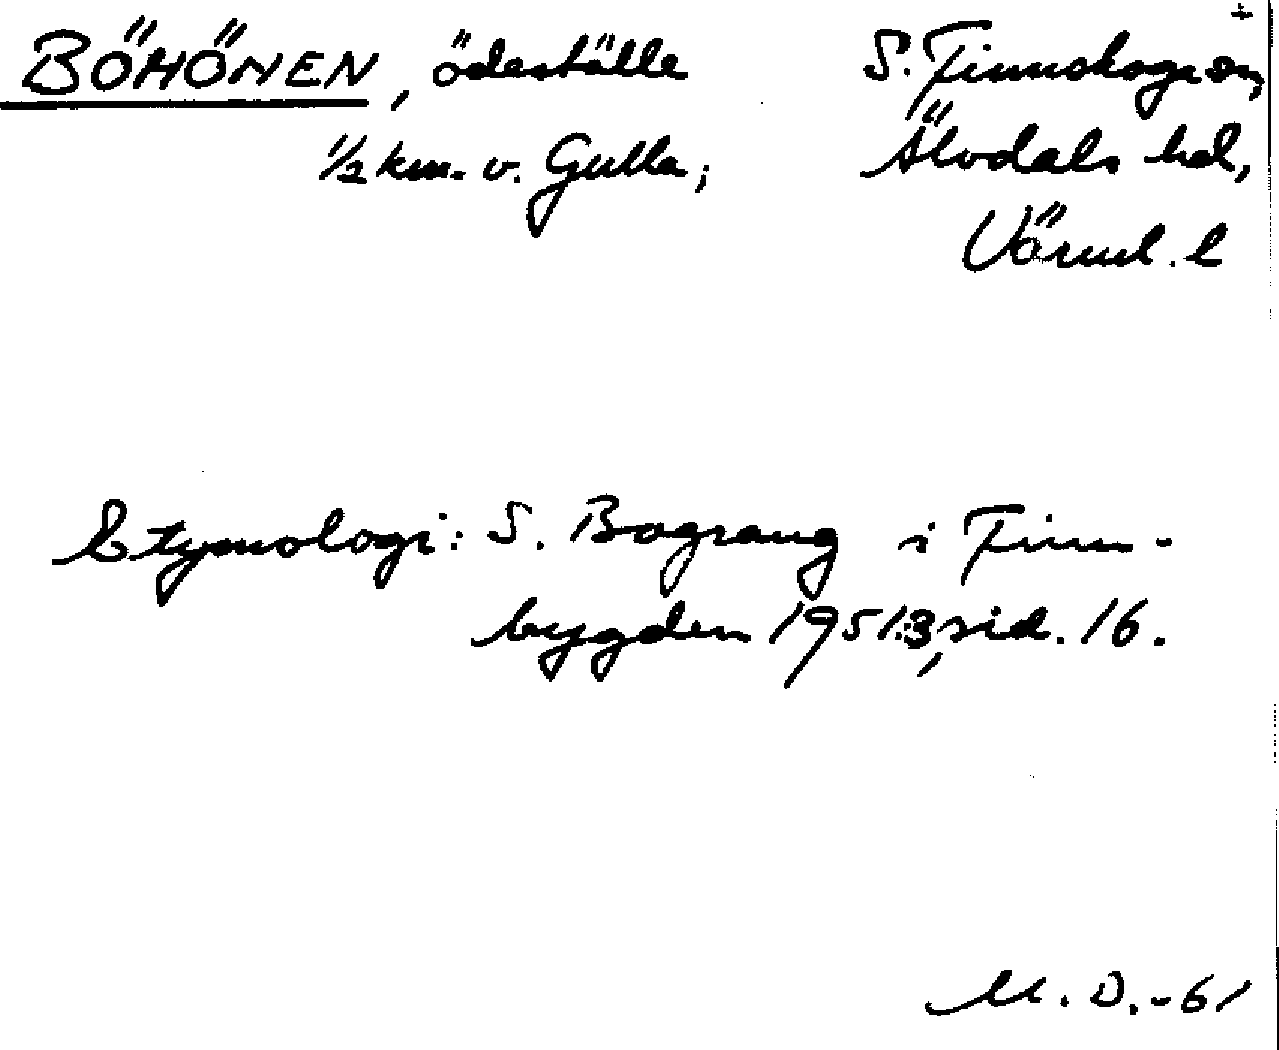 BÖHÖNEN, ödeställe S. Finnskogen,
½ km. v. Gulla; Älvdals hd,
Värml. l
Etymologi: S. Bograng i Finn-
bygden 1951:3, sid. 16.
M. D. -61